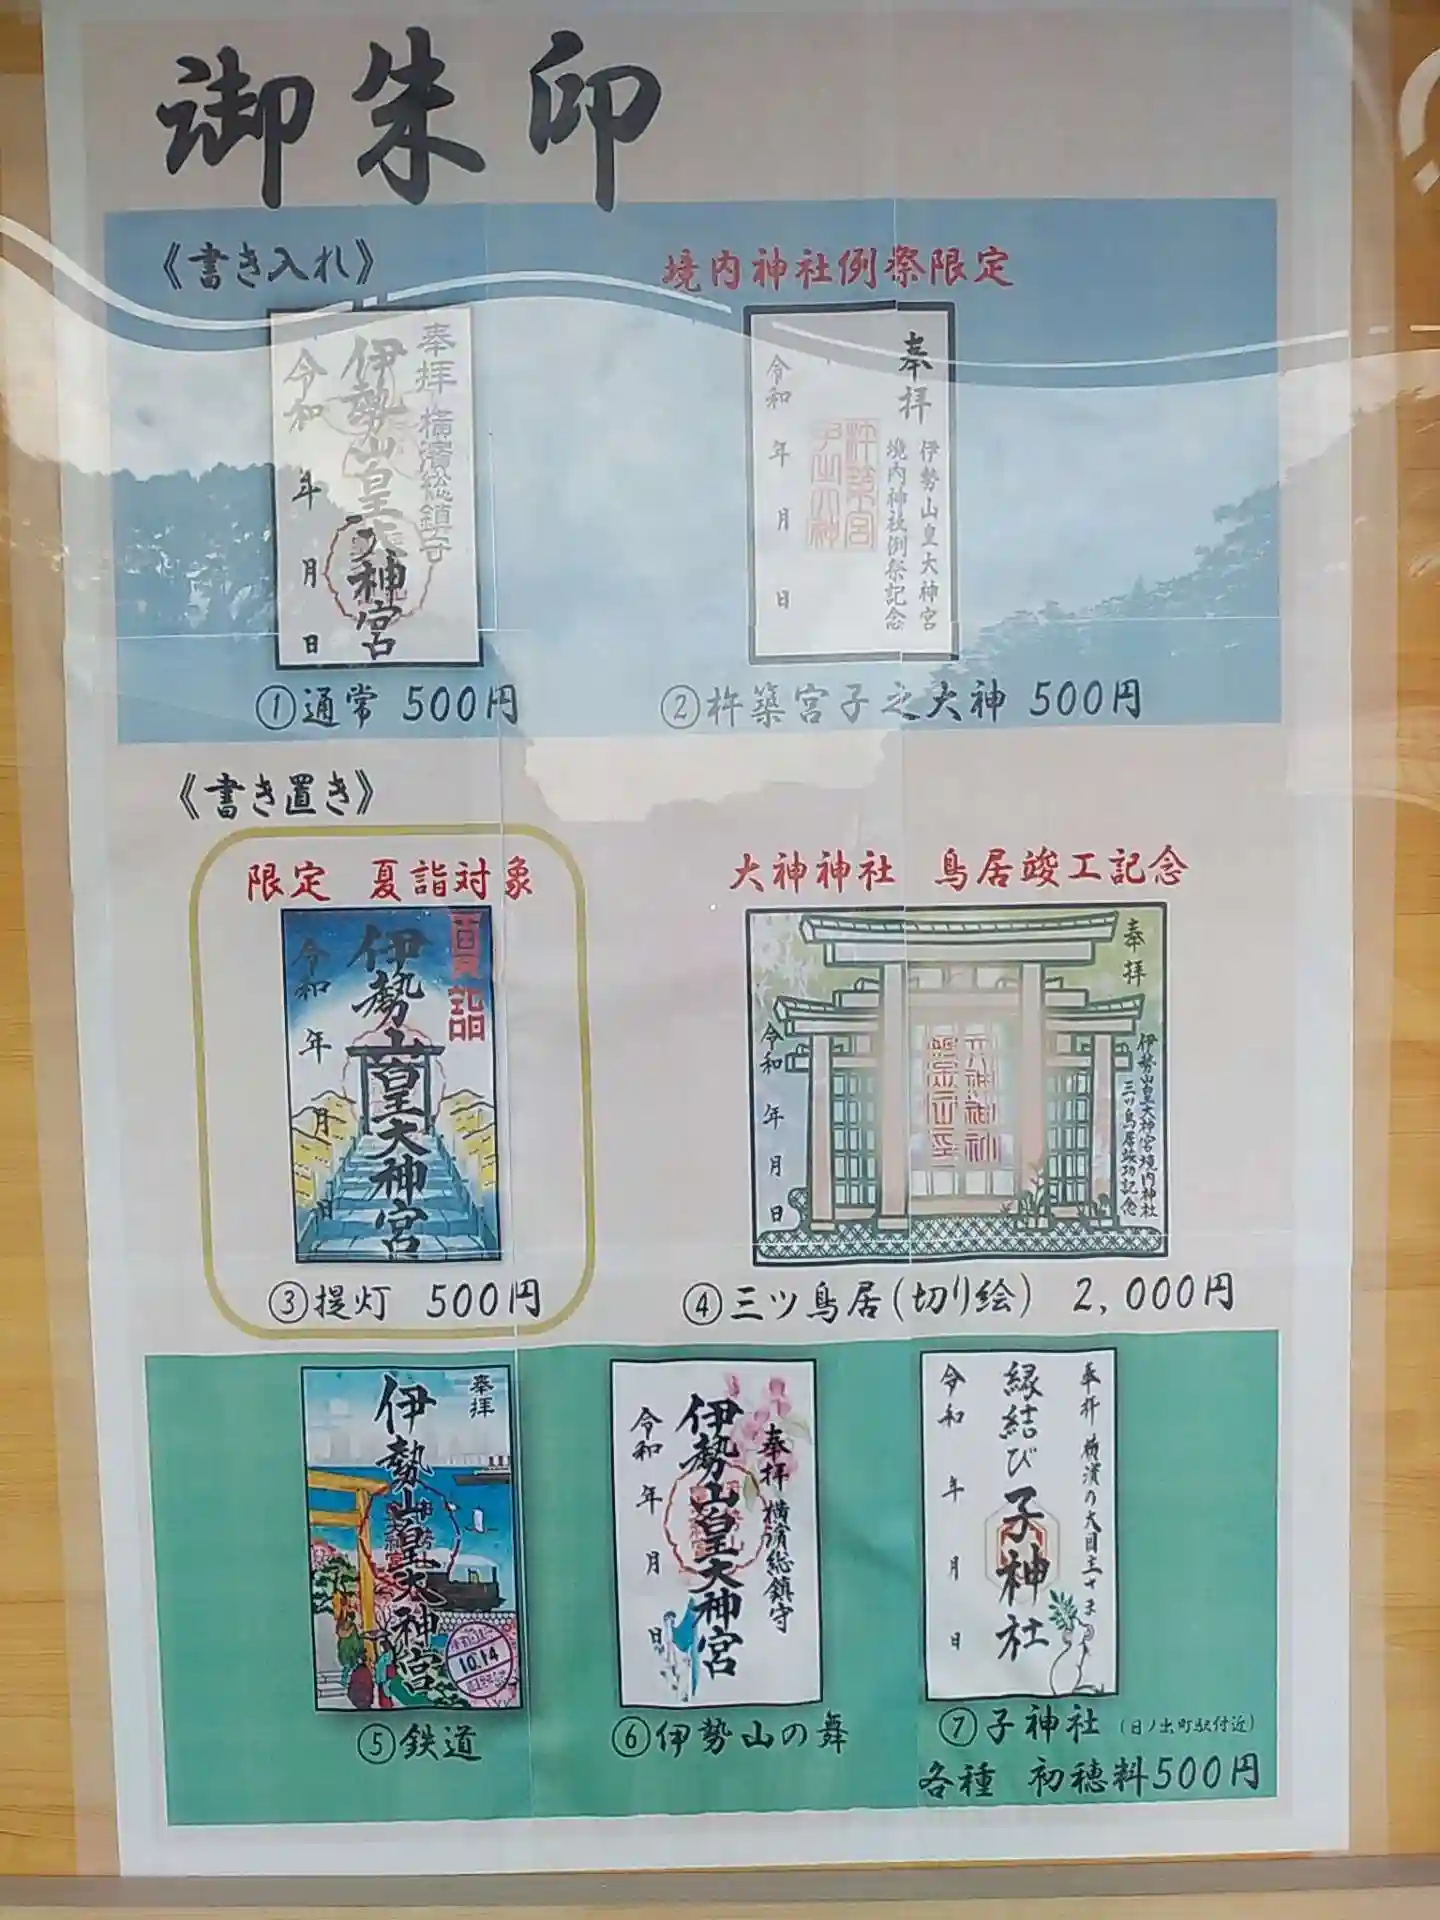 御朱印
《書き入れ》
境内神社例祭限定
奉拝 横濱総鎮守
伊勢山皇大神宮
令和 年 月 日
奉拝
伊勢山皇大神宮
境内神社例祭記念
令和 年 月 日
①通常 500円
②杵築宮子之大神 500円
《書き置き》
限定 夏詣対象
大神神社 鳥居竣工記念
夏詣
伊勢山皇大神宮
令和 年 月 日
奉拝
伊勢山皇大神宮境内神社
三ツ鳥居竣功記念
令和 年 月 日
③提灯 500円
④三ツ鳥居(切り絵) 2,000円
奉拝
伊勢山皇大神宮
10.14
奉拝 横濱総鎮守
伊勢山皇大神宮
令和 年 月 日
縁結び 子神社
令和 年 月 日
⑤鉄道
⑥伊勢山の舞
⑦子神社 (日ノ出町駅付近)
各種 初穂料500円